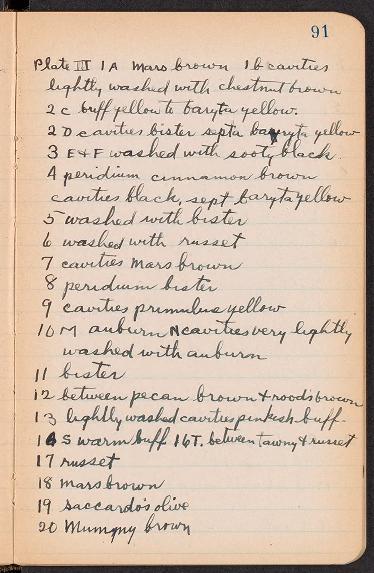 91
Plate III 1A Mars brown 1b cavities
lightly washed with chestnut brown
2 C buff yellow to baryta yellow.
2 D cavities bister septa baryta yellow
3 E & F washed with sooty black.
4 peridium cinnamon brown
cavities black, sept baryta yellow
5 washed with bister
6 washed with russet
7 cavities Mars brown
8 peridium bister
9 cavities primulus yellow
10 M auburn N cavities very lightly
washed with auburn
11 bister
12 between pecan brown & roods brown
13 lightly washed cavities pinkish buff.
16 S warm buff 16T. between tawny & russet
17 russet
18 mars brown
19 saccardo's olive
20 Mummy brown